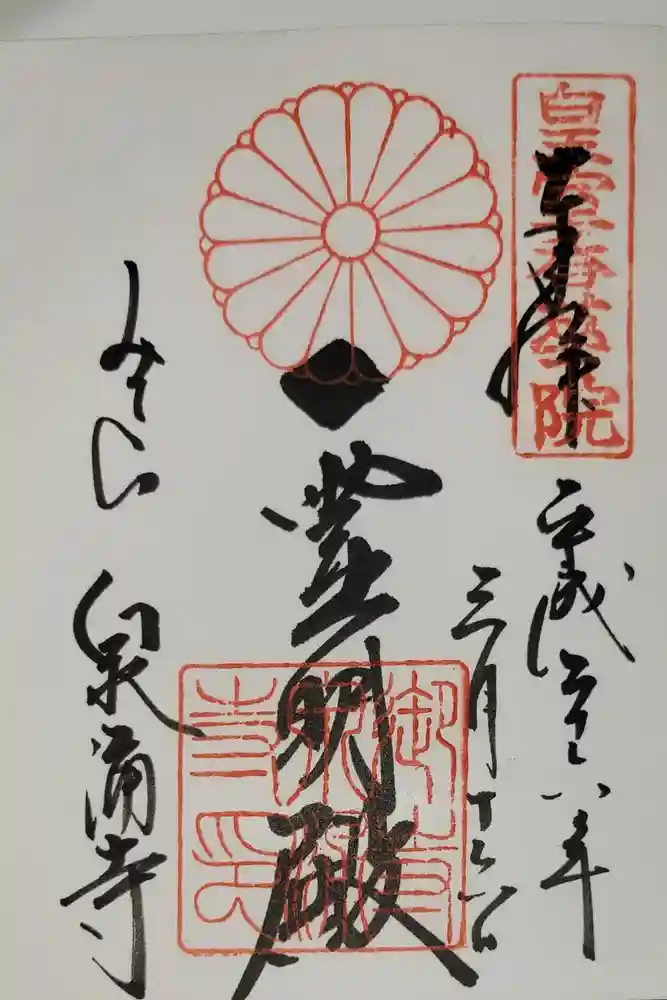 皇室香華院
奉拝
平成二十八年
三月十六日
霊明殿
御寺泉涌寺印
みてら
泉涌寺